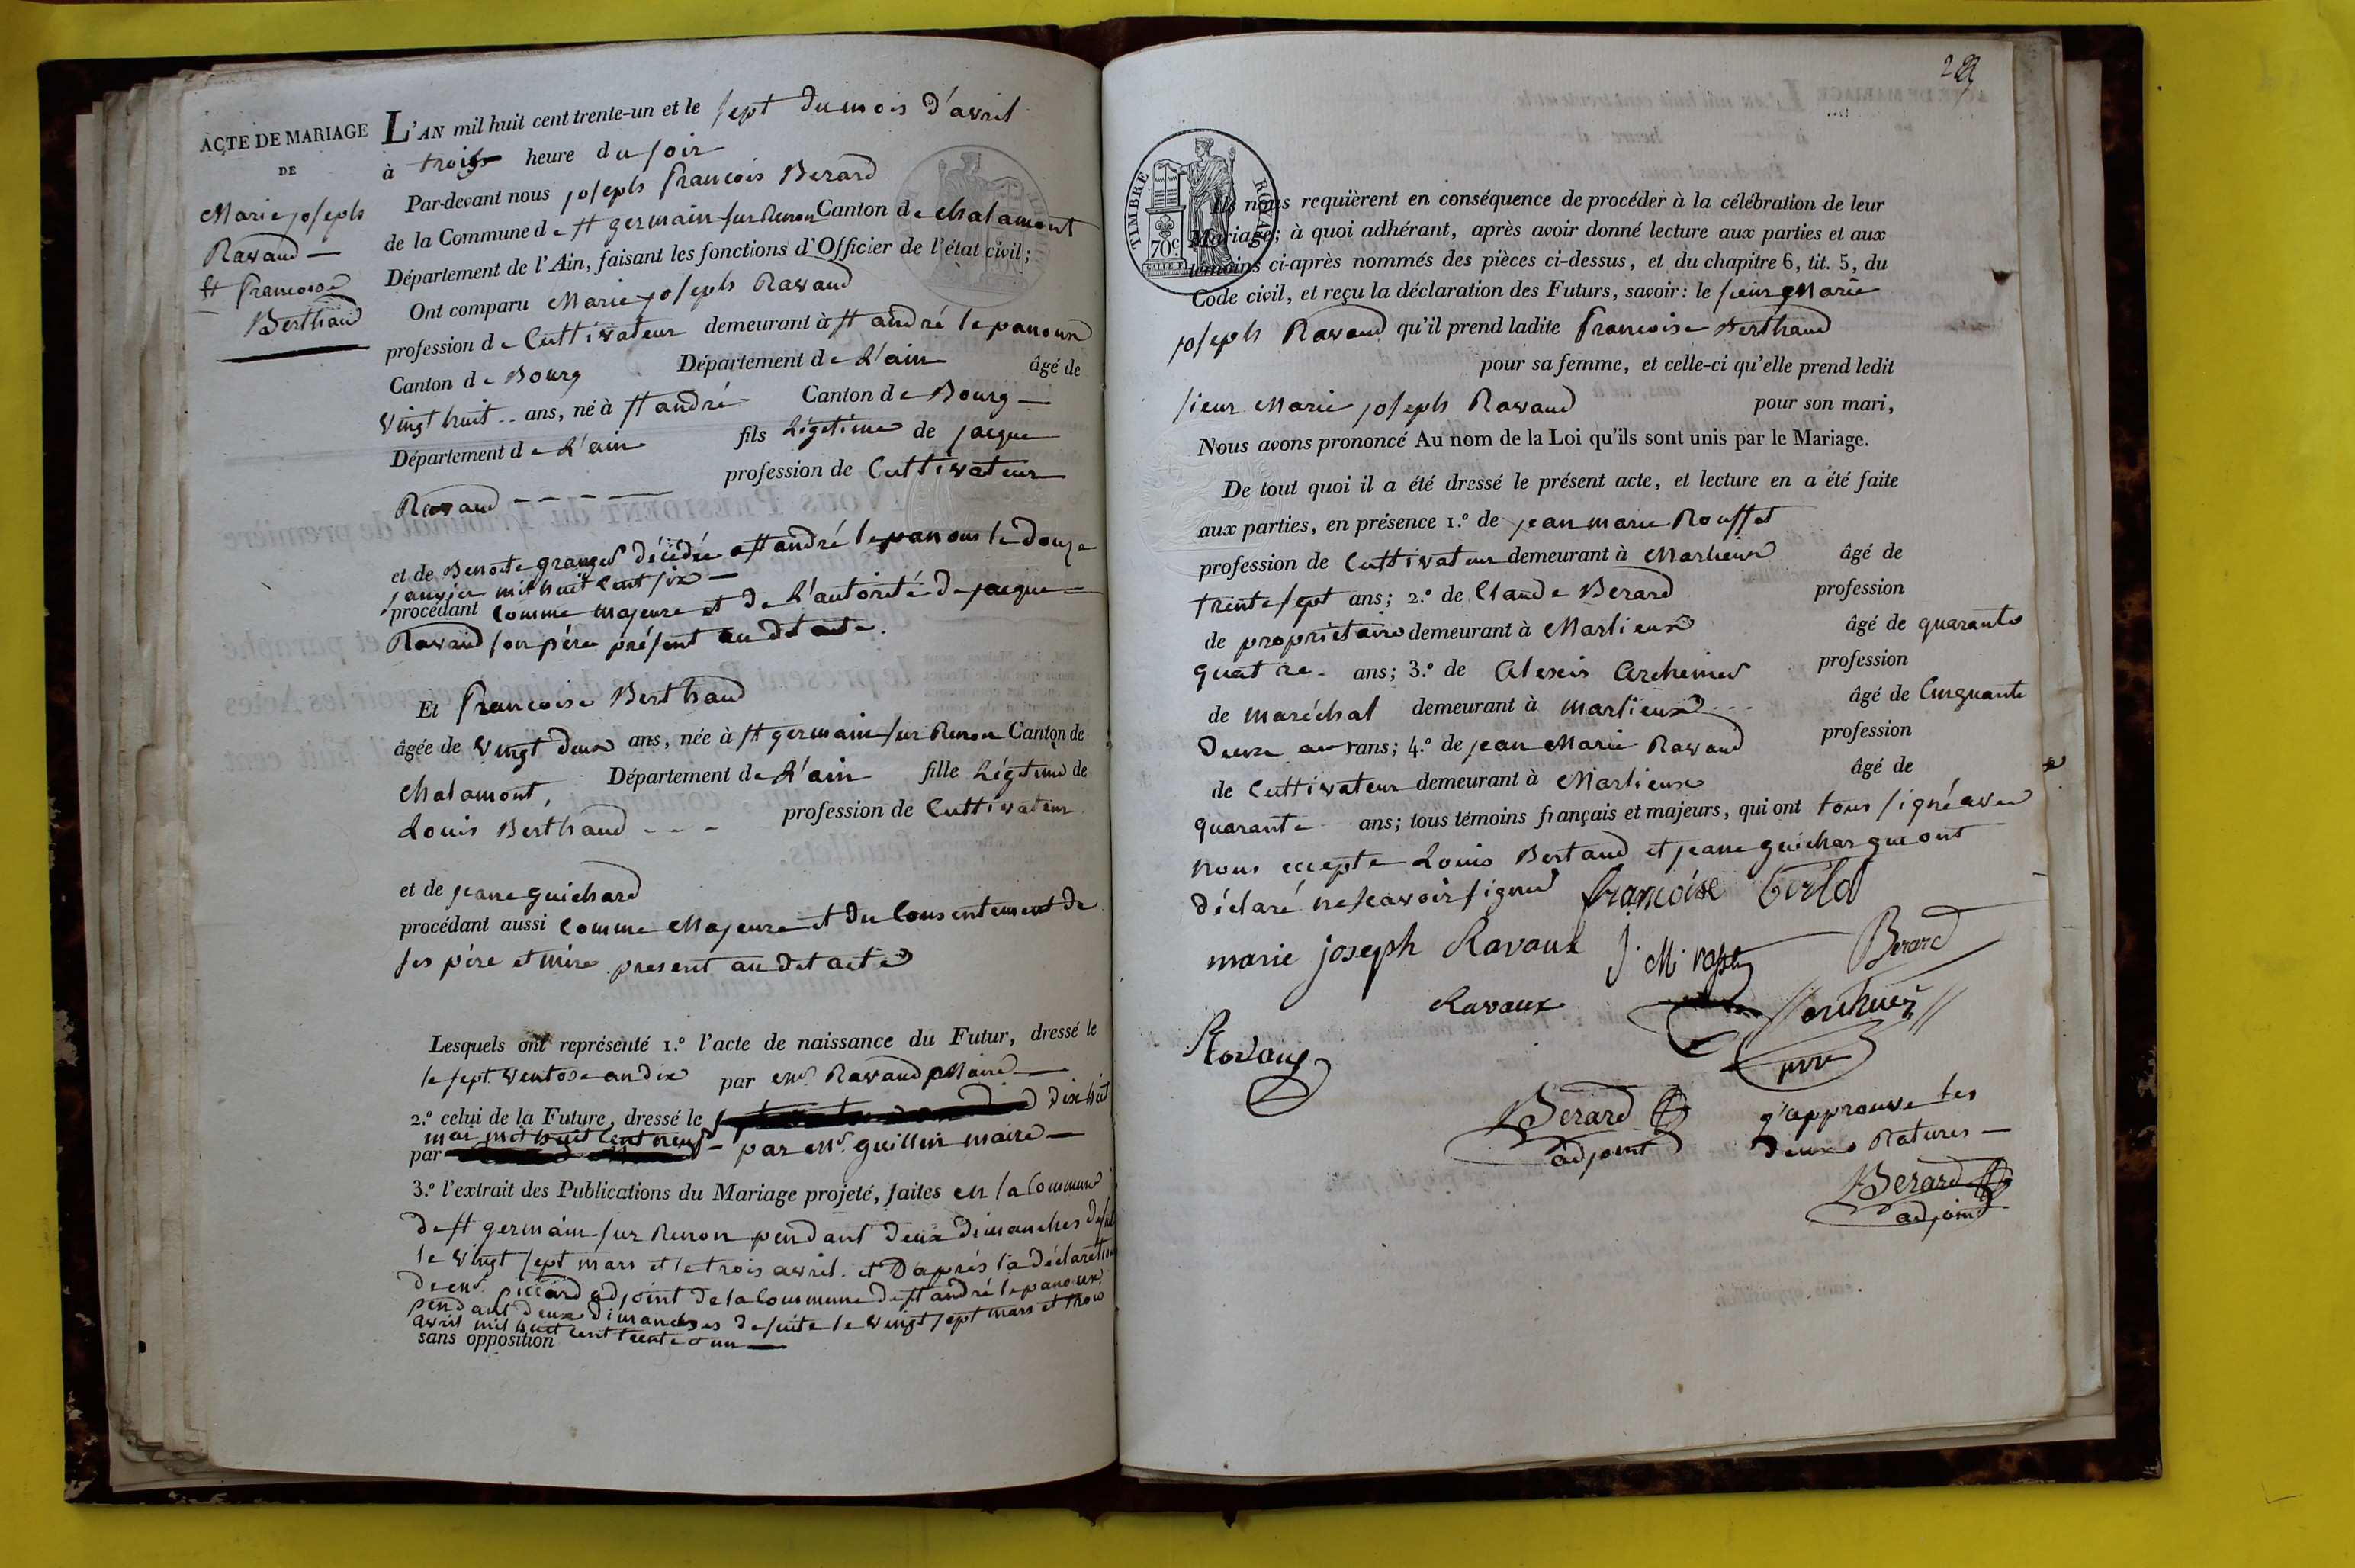 ACTE DE MARIAGE
DE
Marie joseph
Ravaud —
et francoise
Berthaud
L'AN mil huit cent trente-un et le sept du mois d'avril
à trois heure du soir
Par-devant nous joseph francois Berard
de la Commune de st germain sur Renon Canton de chalamont
Département de l'Ain, faisant les fonctions d'Officier de l'état civil;
Ont comparu Marie joseph Ravaud
profession de Cultivateur demeurant à st andré le panoux
Canton de Bourg Département de L'ain âgé de
vingt huit .. ans, né à st andré Canton de Bourg —
Département de L'ain fils Légitime de jacque
Ravaud - - - - profession de Cultivateur
et de Benoite granger décédée a st andré le panoux le douze
janvier mil huit cent six —
procédant comme majeure et de L'autorité de jacque
Ravaud son père présent au dt acte.
Et francoise Berthaud
âgée de vingt deux ans, née à st germain sur Renon Canton de
chalamont, Département de L'ain fille Légitime de
Louis Berthaud - - - profession de Cultivateur
et de jeane guichard
procédant aussi comme Majeure et du Consentement de
ses père et mère present au dt acte
Lesquels ont représenté 1.º l'acte de naissance du Futur, dressé le
le sept ventose an dix par mr. Ravaud Maire —
2.º celui de la Future, dressé le dix huit
mai mil huit cent neuf —
par par mr. guillin maire —
3.º l'extrait des Publications du Mariage projeté, faites en la Commune
de st germain sur Renon pendant deux dimanches de suite
le vingt sept mars et le trois avril. et D'après la déclaration
de mr. picard adjoint de la Commune de st andré le panoux
pendant deux dimanches de suite le vingt sept mars et trois
avril mil huit cent trente et un —
sans opposition
Ils nous requièrent en conséquence de procéder à la célébration de leur
Mariage; à quoi adhérant, après avoir donné lecture aux parties et aux
témoins ci-après nommés des pièces ci-dessus, et du chapitre 6, tit. 5, du
Code civil, et reçu la déclaration des Futurs, savoir: le sieur Marie
joseph Ravaud qu'il prend ladite francoise Berthaud
pour sa femme, et celle-ci qu'elle prend ledit
sieur Marie joseph Ravaud pour son mari,
Nous avons prononcé Au nom de la Loi qu'ils sont unis par le Mariage.
De tout quoi il a été dressé le présent acte, et lecture en a été faite
aux parties, en présence 1.º de jean marie Rouffet
profession de Cultivateur demeurant à Marlieux âgé de
trente sept ans; 2.º de Claude Berard profession
de propriétaire demeurant à Marlieux âgé de quarante
quatre. ans; 3.º de Alexis profession
de maréchal demeurant à marlieux - - - âgé de Cinquante
Deux ans; 4.º de jean Marie Ravaud profession
de Cultivateur demeurant à Marlieux âgé de
quarante ans; tous témoins français et majeurs, qui ont tous signé avec
nous excepte Louis Bertaud et jeane guichar qui ont
déclaré ne savoir signer francoise
marie joseph Ravaux J. M. Berard
Ravaux
Berard
adjoint
j'approuve les
deux Ratures —
Berard
adjoint
TIMBRE ROYAL
70c